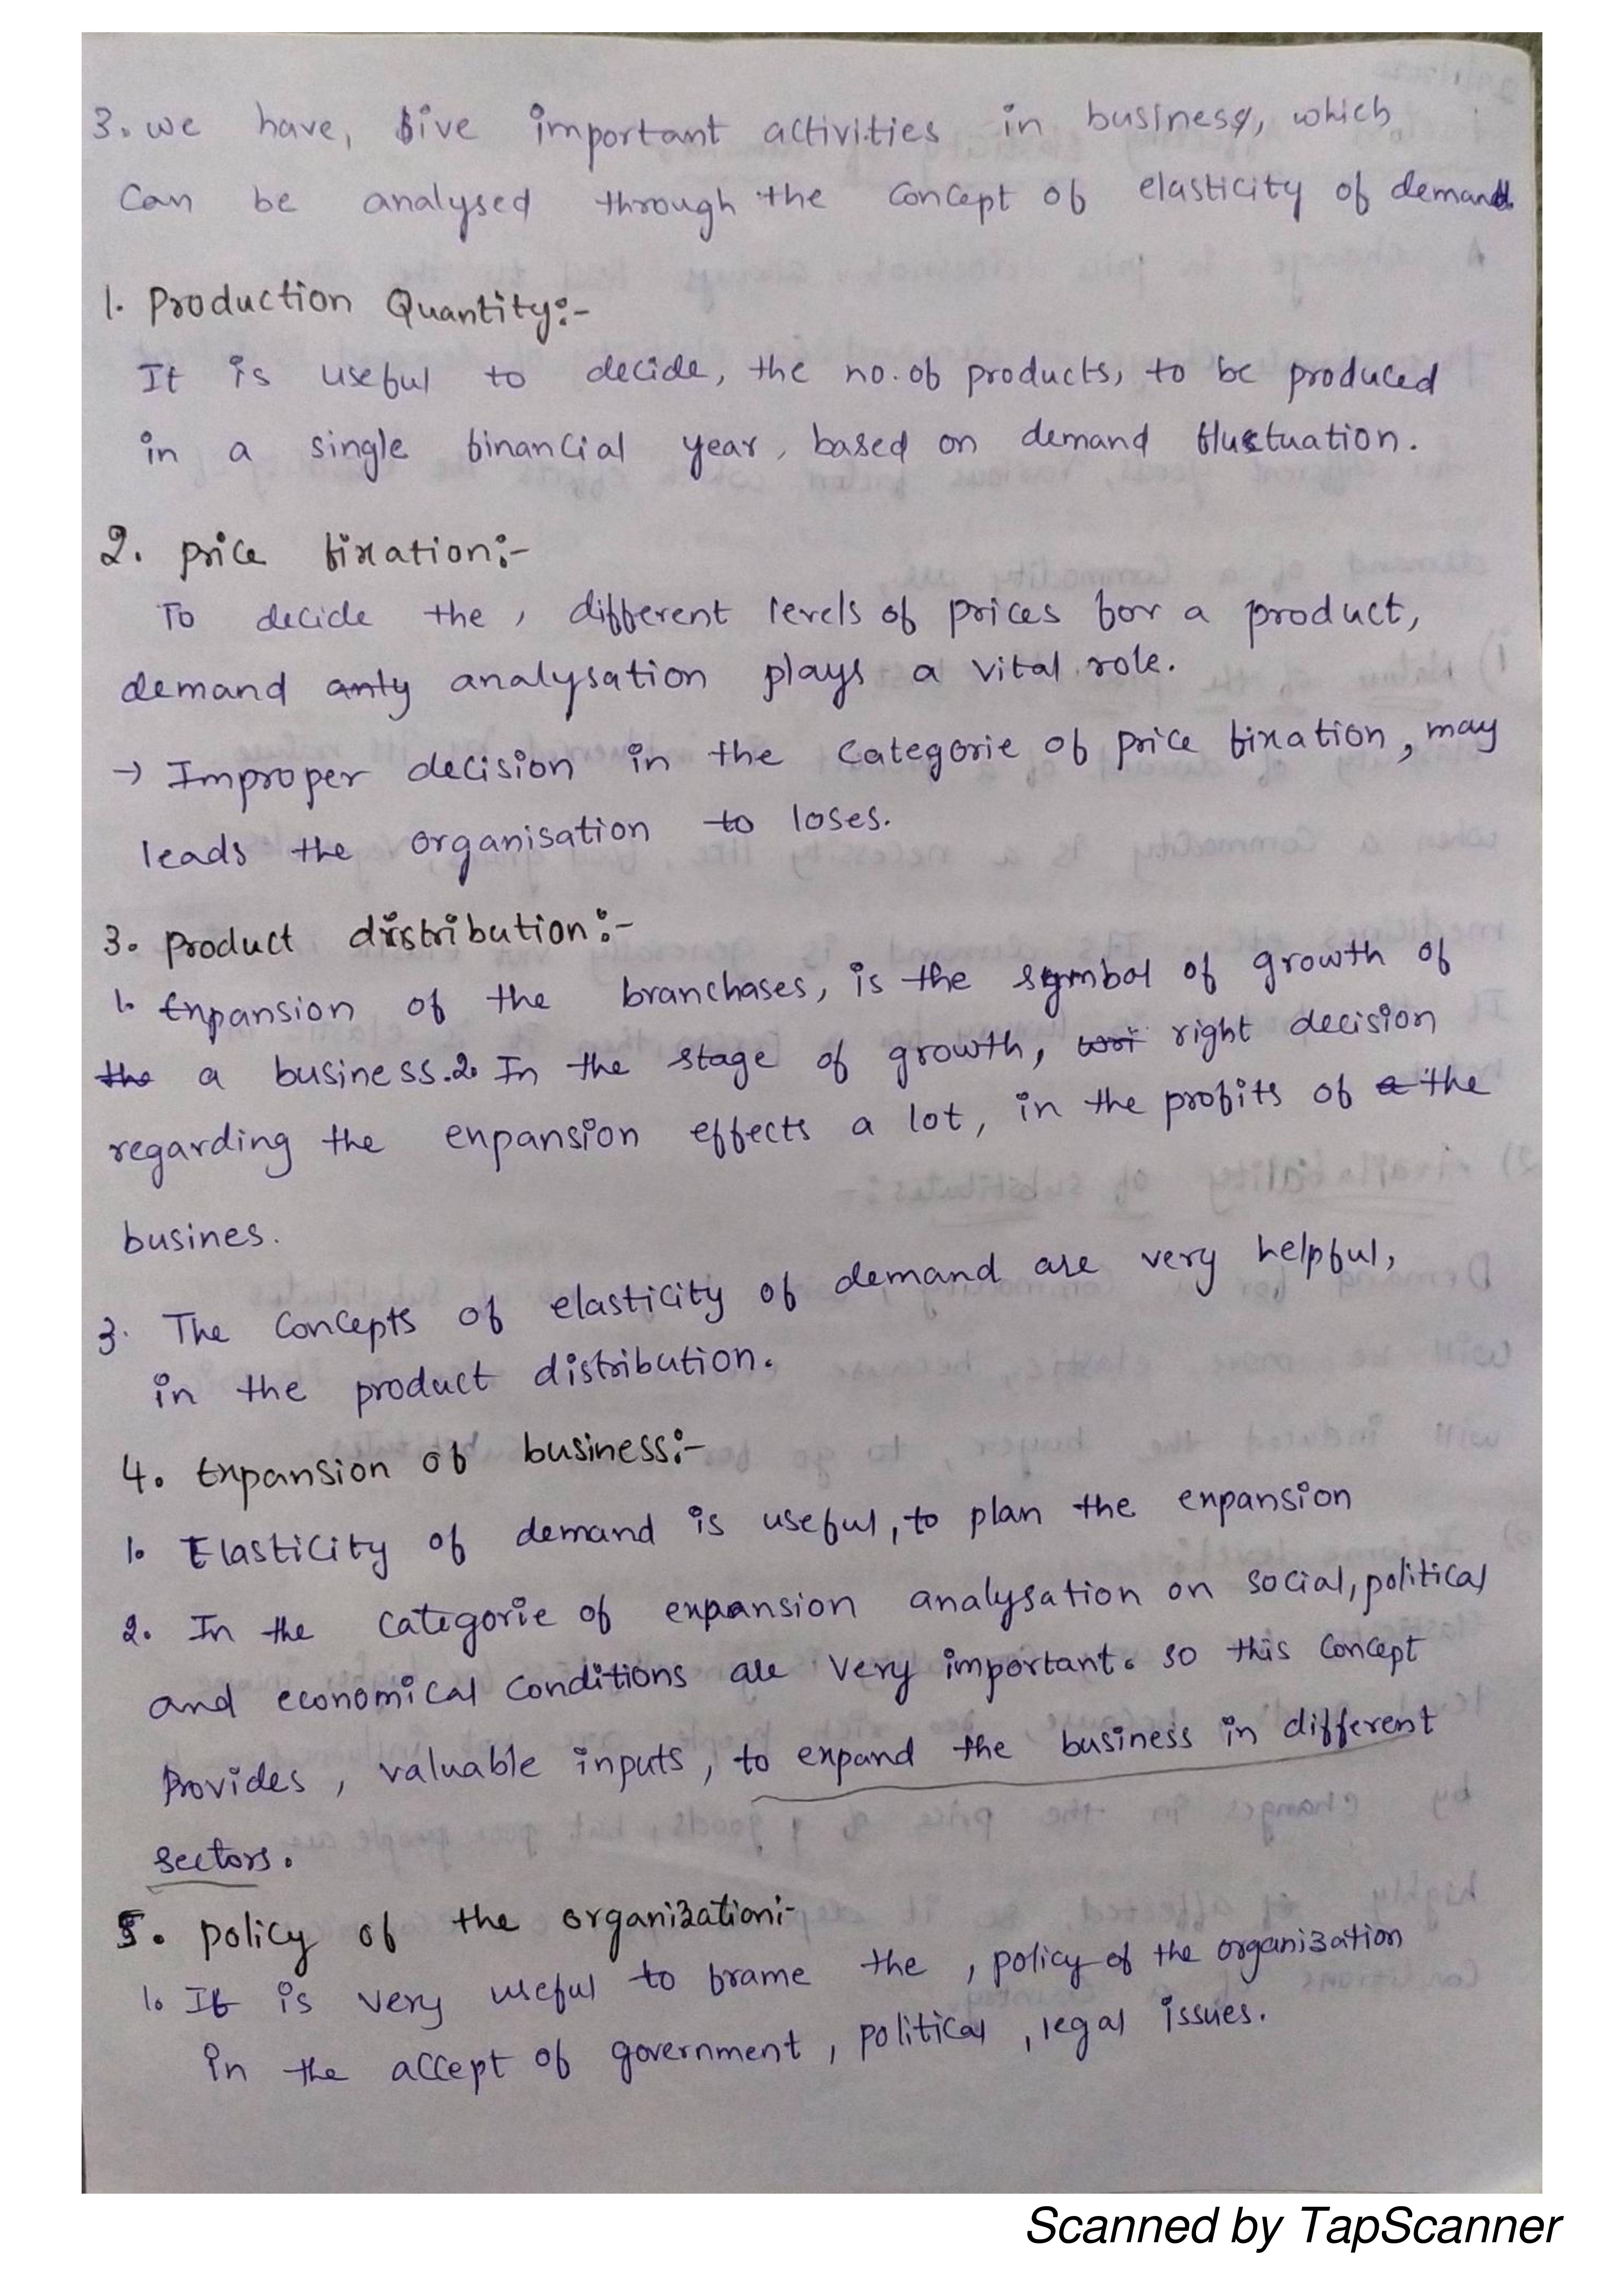 3. we have, five important activities in business, which
Can be analysed through the concept of elasticity of demand.
1. Production Quantity:-
It is useful to decide, the no. of products, to be produced
in a single financial year, based on demand fluctuation.
2. price fixation:-
To decide the , different levels of prices for a product,
demand anly analysation plays a vital role.
→ Improper decision in the categorie of price fixation, may
leads the organisation to loses.
3. product distribution:-
1. Expansion of the branchases, is the symbol of growth of
the a business. 2. In the stage of growth, wri right decision
regarding the expansion effects a lot, in the profits of a the
busines.
3. The concepts of elasticity of demand are very helpful,
in the product distribution.
4. Expansion of business:-
1. Elasticity of demand is useful, to plan the expansion
2. In the categorie of expansion analysation on social, political
and economical conditions are very important. so this concept
Provides , valuable inputs , to expand the business in different
sectors.
5. policy of the organization:-
1. It is very useful to frame the , policy of the organization
in the accept of government , political , legal issues.
Scanned by TapScanner